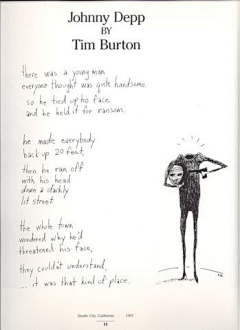 Johnny Depp
BY
Tim Burton
there was a young man
everyone thought was quite handsome.
so he tied up his face
and he held it for ransom.
he made everybody
back up 20 feet,
then he ran off
with his head
down a darkly
lit street.
the whole town
wondered why he'd
threatened his face,
they couldn't understand,
... it was that kind of place.
Studio City, California 1991